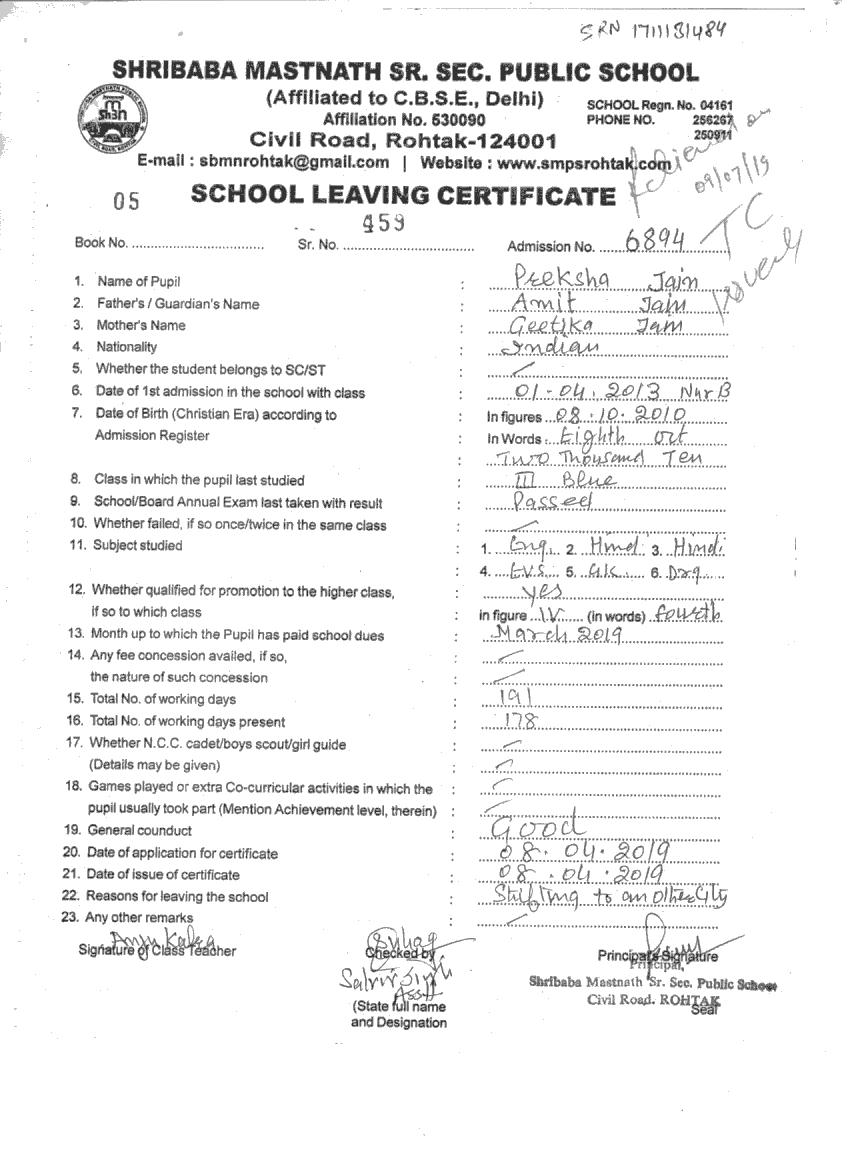 SRN 1711131484
SHRIBABA MASTNATH SR. SEC. PUBLIC SCHOOL
(Affiliated to C.B.S.E., Delhi)
Affiliation No. 530090
SCHOOL Regn. No. 04161
PHONE NO. 256267
250911
Civil Road, Rohtak-124001
E-mail : sbmnrohtak@gmail.com | Website : www.smpsrohtak.com
09/07/19
TC
05 SCHOOL LEAVING CERTIFICATE
459
Book No. Sr. No. Admission No. 6894
1. Name of Pupil : Preeksha Jain
2. Father's / Guardian's Name : Amit Jain
3. Mother's Name : Geetika Jain
4. Nationality : Indian
5. Whether the student belongs to SC/ST :
6. Date of 1st admission in the school with class : 01-04.2013 Nur B
7. Date of Birth (Christian Era) according to : In figures 08.10.2010
Admission Register : In Words Eighth Oct
: Two Thousand Ten
8. Class in which the pupil last studied : III Blue
9. School/Board Annual Exam last taken with result : Passed
10. Whether failed, if so once/twice in the same class :
11. Subject studied : 1. Eng. 2. Hind 3. Hindi
: 4. E.V.S. 5. G.K. 6. Drg
12. Whether qualified for promotion to the higher class, : yes
if so to which class : in figure IV (in words) fourth
13. Month up to which the Pupil has paid school dues : March 2019
14. Any fee concession availed, if so, :
the nature of such concession :
15. Total No. of working days : 191
16. Total No. of working days present : 178
17. Whether N.C.C. cadet/boys scout/girl guide :
(Details may be given) :
18. Games played or extra Co-curricular activities in which the :
pupil usually took part (Mention Achievement level, therein) :
19. General counduct : Good
20. Date of application for certificate : 08.04.2019
21. Date of issue of certificate : 08.04.2019
22. Reasons for leaving the school : Shifting to an other City
23. Any other remarks :
Signature of Class Teacher Checked by Principal's Signature
Principal,
Shribaba Mastnath Sr. Sec. Public School
Civil Road. ROHTAK
Seal
(State full name
and Designation